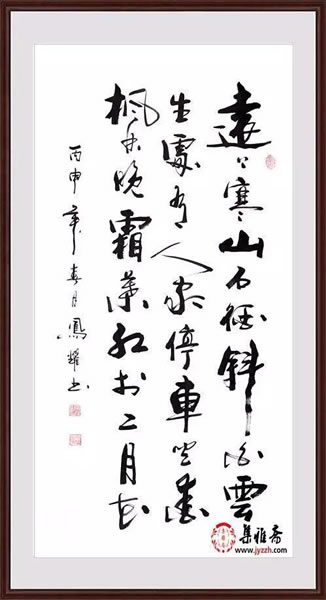 遠上寒山石徑斜白雲
生處有人家停車坐愛
楓林晚霜葉紅於二月花
丙申年春月鳳耀书
集雅斋
www.jyzzh.com